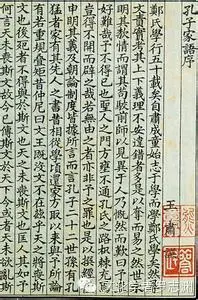 孔子家語序
王肅
鄭氏學行五十載矣自肅成童始志于學而學鄭氏學矣然尋
文責實考其上下義理不安違錯者多是以奪而易之然世未
明其款情而謂其苟駁前師以見異于人乃慨然而歎曰予豈
好難哉予不得已也聖人之門方壅不通孔氏之路枳棘充焉
豈得不開而辟之哉若無由之者亦非予之罪也是以撰經禮
申明其義及朝論制度皆據所見而言孔子二十二世孫有孔
猛者家有其先人之書昔相從學頃還家方取以來與予所論
有若重規疊矩昔仲尼曰文王既沒文不在茲乎天之將喪斯
文也後死者不得與於斯文也天之未喪斯文也匡人其如予
何言天未喪斯文故令已傳斯文於天下今或者天未欲亂斯